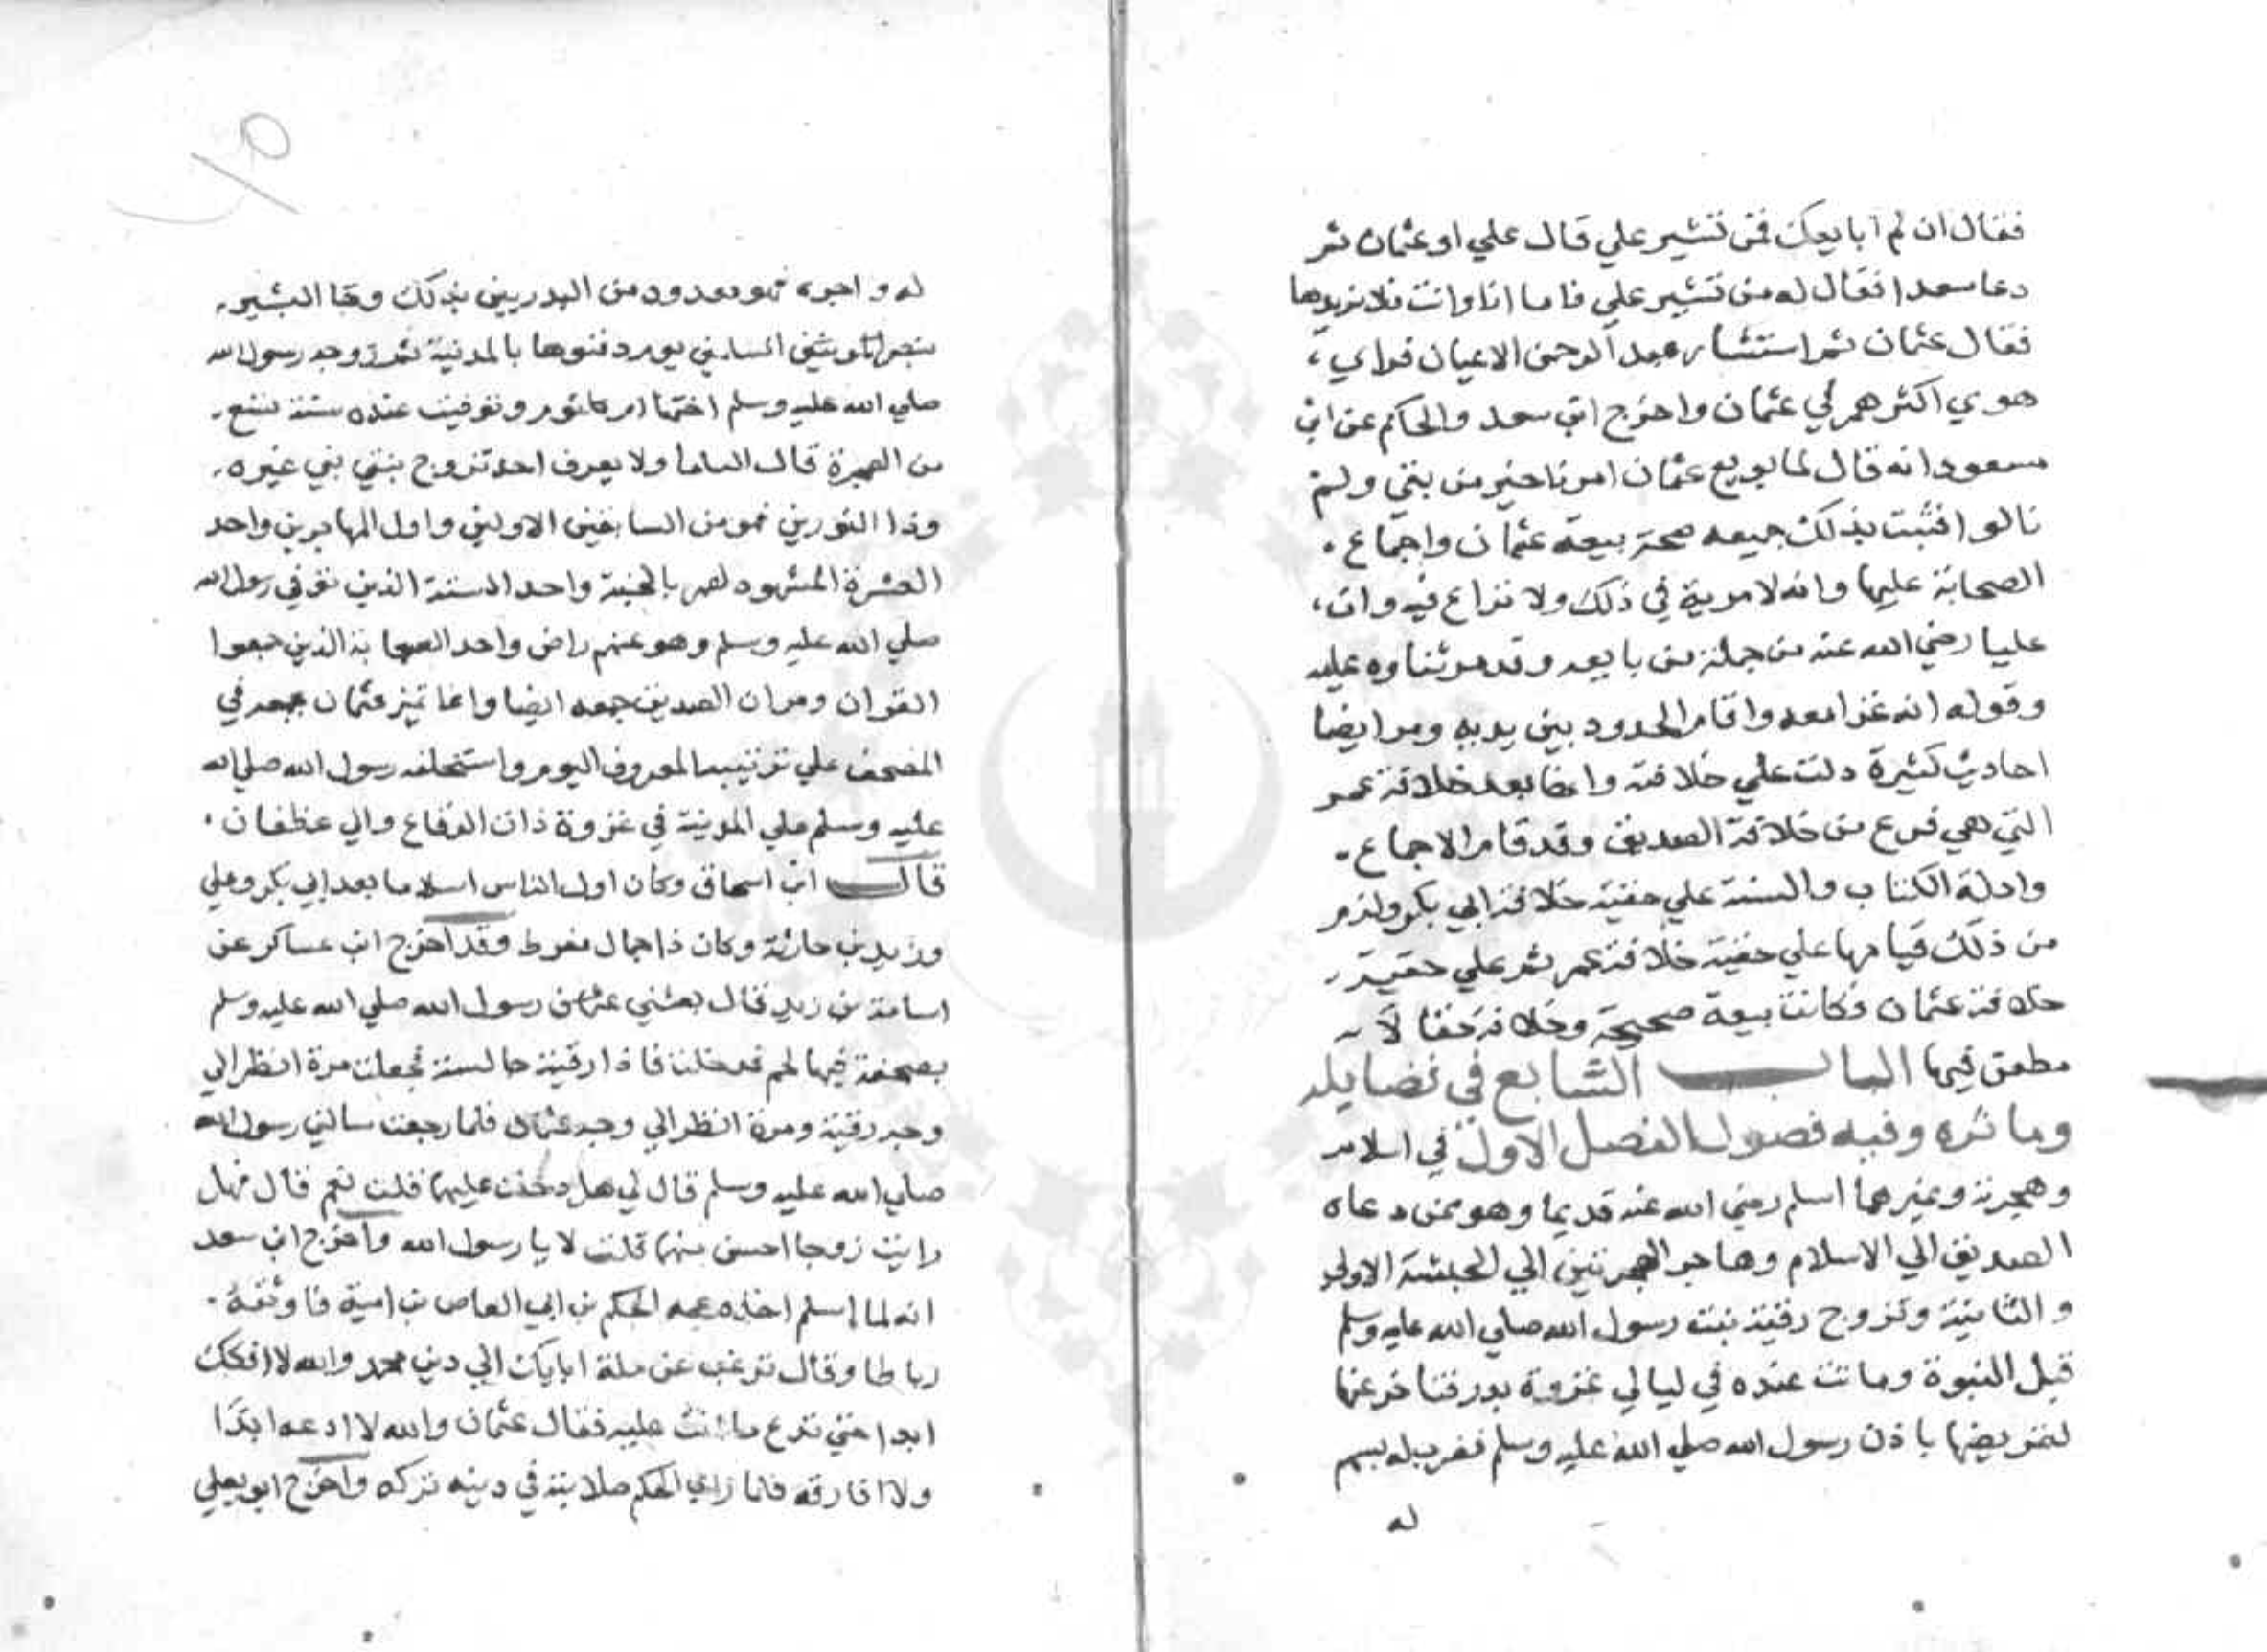 فقال ان لم ابايعك فمن تشير علي قال علي او عثمان ثم
دعا سعدا فقال له من تشير علي فاما انا وانت فلا نريدها
فقال عثمان ثم استشار عبد الرحمن الاعيان فراي
هوي اكثرهم في عثمان واخرج ابن سعد والحاكم عن ابن
مسعود انه قال لما بويع عثمان امرنا خير من بقي ولم
نالوا فثبت بذلك جميعه صحة بيعة عثمان واجماع
الصحابة عليها وانه لا مرية في ذلك ولا نزاع فيه وان
عليا رضي الله عنه من جملة من بايعه وقد مر ثناوه عليه
وقوله انه غزا معه واقام الحدود بين يديه ومر ايضا
احاديث كثيرة دلت علي خلافته وانها بعد خلافة عمر
التي هي فرع من خلافة الصديق وقد قام الاجماع
وادلة الكتاب والسنة علي حقية خلافة ابي بكر ولزم
من ذلك قيامها علي حقية خلافة عمر ثم علي حقية
خلافة عثمان فكانت بيعة صحيحة وخلافة حقا لا
مطعن فيها الباب السابع في فضايله
وماثره وفيه فصول الفصل الاول في اسلامه
وهجرته وغيرهما اسلم رضي الله عنه قديما وهو ممن دعاه
الصديق الي الاسلام وهاجر الهجرتين الي الحبشة الاولي
والثانية وتزوج رقية بنت رسول الله صلي الله عليه وسلم
قبل النبوة وماتت عنده في ليالي غزوة بدر فتاخر عنها
لتمريضها باذن رسول الله صلي الله عليه وسلم فضرب له بسهم
له
له واجره فهو معدود من البدريين بذلك وجا البشير
بنصر المسلمين يوم دفنوها بالمدنية ثم زوجه رسول الله
صلي الله عليه وسلم اختها ام كلثوم وتوفيت عنده سنة تسع
من الهجرة قال العلما ولا يعرف احد تزوج بنتي نبي غيره
وذا النورين فهو من السابقين الاولين واول المهاجرين واحد
العشرة المشهود لهم بالجنة واحد الستة الذين توفي رسول الله
صلي الله عليه وسلم وهو عنهم راض واحد الصحابة الذين جمعوا
القران ومر ان الصديق جمعه ايضا وانما تميز عثمان بجمعه في
المصحف علي ترتيبه المعروف اليوم واستخلفه رسول الله صلي الله
عليه وسلم علي المدينة في غزوة ذات الرقاع والي غطفان
قال ابن اسحاق وكان اول الناس اسلاما بعد ابي بكر وعلي
وزيد بن حارثة وكان ذا جمال مفرط وقد اخرج ابن عساكر عن
اسامة بن زيد قال بعثني رسول الله صلي الله عليه وسلم
بصحفة فيها لحم فدخلت فاذا رقية جالسة فجعلت مرة انظر الي
وجه رقية ومرة انظر الي وجه عثمان فلما رجعت سالني رسول الله
صلي الله عليه وسلم قال لي هل دخلت عليهما قلت نعم قال فهل
رايت زوجا احسن منهما قلت لا يا رسول الله واخرج ابن سعد
انه لما اسلم اخذه عمه الحكم بن ابي العاص بن امية فاوثقه
رباطا وقال ترغب عن ملة ابايك الي دين محمد والله لا افكك
ابدا حتي تدع ما انت عليه فقال عثمان والله لا ادعه ابدا
ولا افارقه فلما راي الحكم صلابته في دينه تركه واخرج ابو يعلي